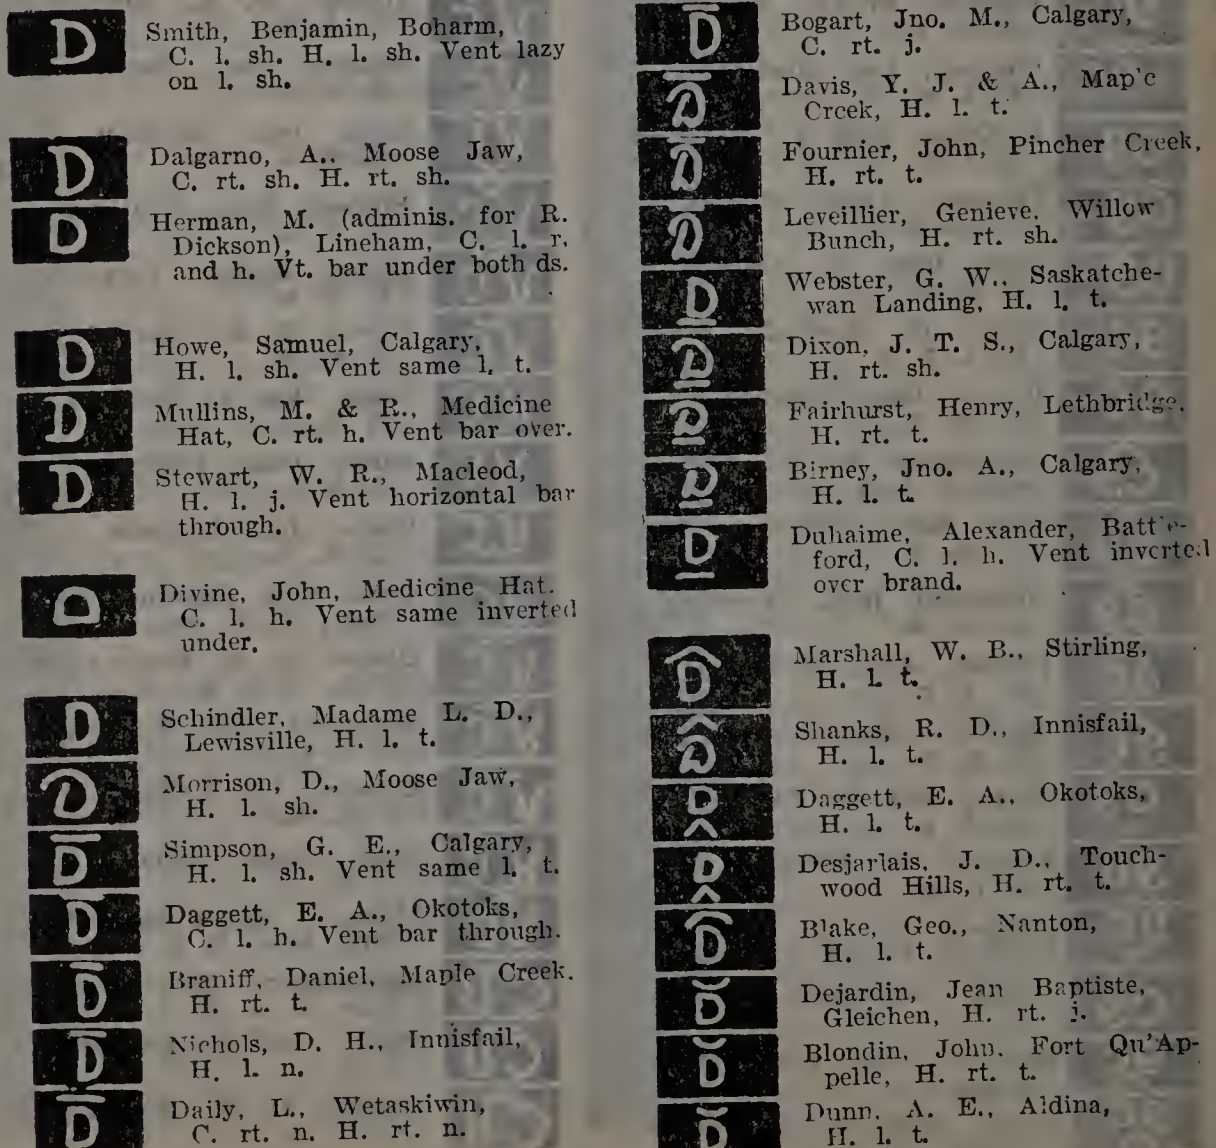 Smith, Benjamin, Boharm,
C. l. sh. H. l. sh. Vent lazy
on l. sh.
Dalgarno, A., Moose Jaw,
C. rt. sh. H. rt. sh.
Herman, M. (adminis. for R.
Dickson), Lineham, C. l. r.
and h. Vt. bar under both ds.
Howe, Samuel, Calgary,
H. l. sh. Vent same l. t.
Mullins, M. & R., Medicine
Hat, C. rt. h. Vent bar over.
Stewart, W. R., Macleod,
H. l. j. Vent horizontal bar
through.
Divine, John, Medicine Hat.
C. l. h. Vent same inverted
under.
Schindler, Madame L. D.,
Lewisville, H. l. t.
Morrison, D., Moose Jaw,
H. l. sh.
Simpson, G. E., Calgary,
H. l. sh. Vent same l. t.
Daggett, E. A., Okotoks,
C. l. h. Vent bar through.
Braniff, Daniel, Maple Creek.
H. rt. t.
Nichols, D. H., Innisfail,
H. l. n.
Daily, L., Wetaskiwin,
C. rt. n. H. rt. n.
Bogart, Jno. M., Calgary,
C. rt. j.
Davis, Y. J. & A., Map'e
Creek, H. l. t.
Fournier, John, Pincher Creek,
H. rt. t.
Leveillier, Genieve, Willow
Bunch, H. rt. sh.
Webster, G. W., Saskatche-
wan Landing, H. l. t.
Dixon, J. T. S., Calgary,
H. rt. sh.
Fairhurst, Henry, Lethbridge,
H. rt. t.
Birney, Jno. A., Calgary,
H. l. t.
Duhaime, Alexander, Batt'e-
ford, C. l. h. Vent inverted
over brand.
Marshall, W. B., Stirling,
H. l. t.
Shanks, R. D., Innisfail,
H. l. t.
Daggett, E. A., Okotoks,
H. l. t.
Desjarlais, J. D., Touch-
wood Hills, H. rt. t.
B'ake, Geo., Nanton,
H. l. t.
Dejardin, Jean Baptiste,
Gleichen, H. rt. j.
Blondin, John. Fort Qu'Ap-
pelle, H. rt. t.
Dunn, A. E., Aldina,
H. l. t.